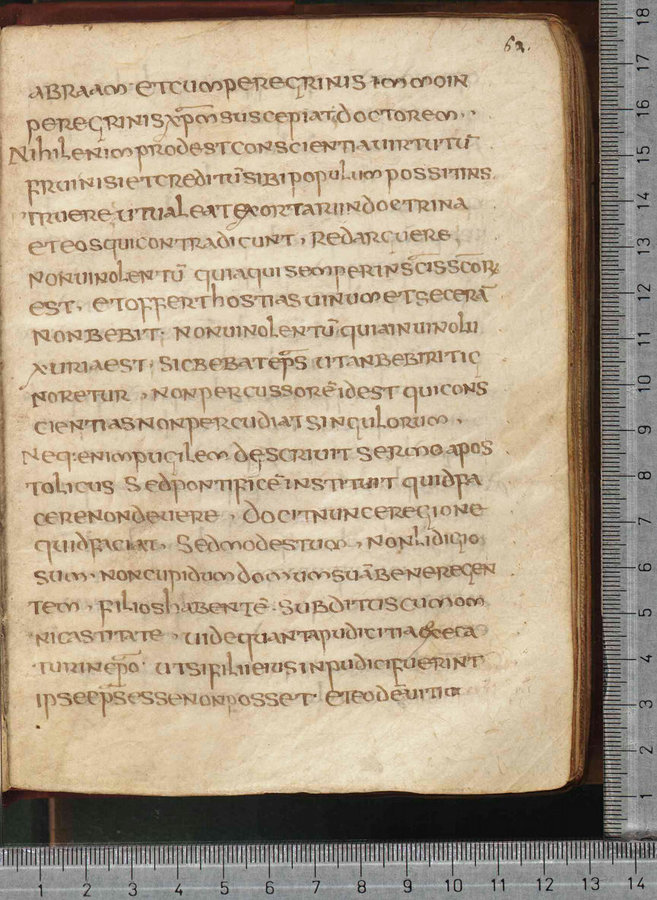 62.
abraam et cum peregrinis immoin
peregrinis xp̄m suscepiat, doctorem.
Nihil enim prodest conscientia uirtutū
frui nisi et creditū sibi populum possit ins
truere ut ualeat exortari in doctrina
et eos qui contradicunt, redarguere,
non uinolentū quia qui semper in sc̄is sc̄or
est, et offert hostias uinum et secerā
non bebit. non uinolentū quia in uino lu
xuria est. sic bebat ep̄s ut an beberit ig
noretur, non percussorē idest qui cons
cientias non percudiat singulorum,
Neq: enim pugilem descriuit sermo apos
tolicus sed pontificē instituit quid fa
cere non deuere, docit nunc e regione
quid faciat, sed modestum, non lidigio
sum. non cupidum domum suā bene regen
tem, filios habentē subditus cum om
ni castitate, uide quanta pudicitia exega
tur in ep̄o ut si filii eius inpudici fuerint
ipse ep̄s esse non posset et eode uitio